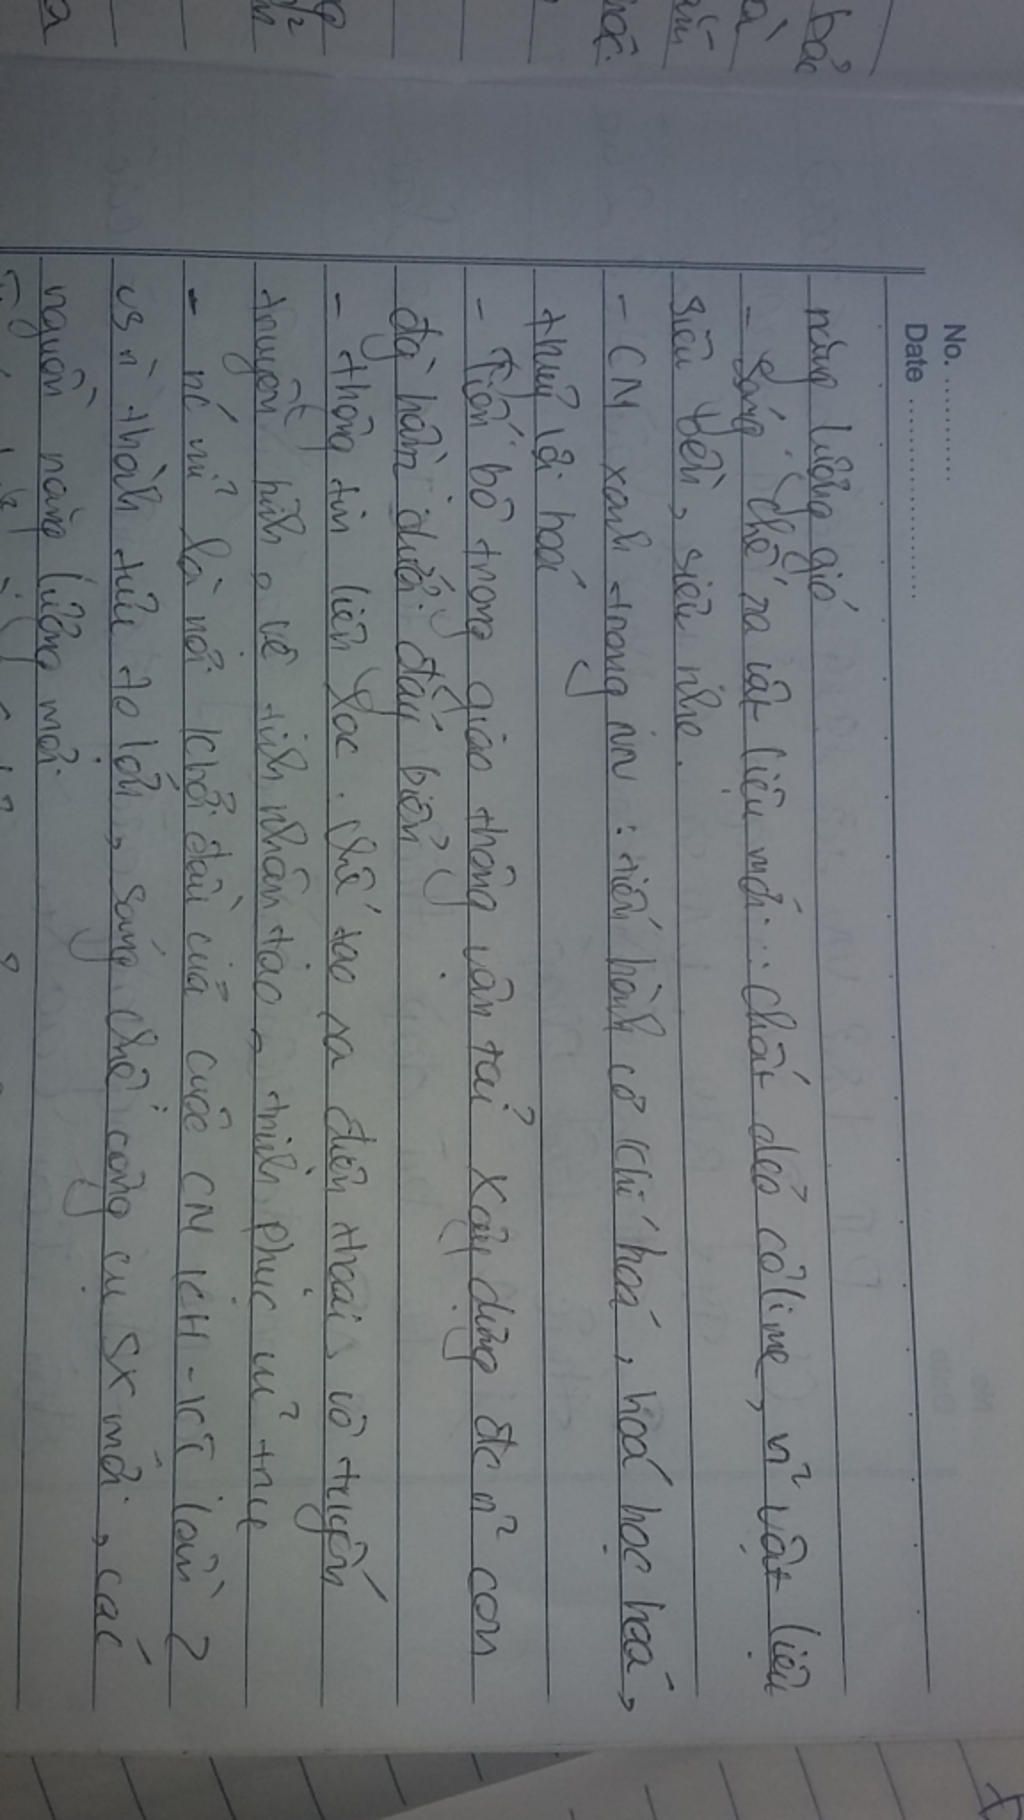 No. ............
Date ......................
năng lượng gió
- Sáng chế ra vật liệu mới: chất dẻo côlime, n² vật liệu
siêu bền, siêu nhẹ.
- CM xanh trong nn: tiến hành cơ khí hoá, hoá học hoá,
thuỷ lợi hoá
- Tiến bộ trong giao thông vận tải xây dựng đc n² con
đg hầm dưới đáy biển
- thông tin liên lạc. chế tạo ra điện thoại vô tuyến
truyền hình, vệ tinh nhân tạo, chinh phục vũ trụ
- nc mĩ là nơi khởi đầu của cuộc CM KH-KT lần 2
vs n~ thành tựu to lớn, sáng chế công cụ SX mới, các
nguồn năng lượng mới.